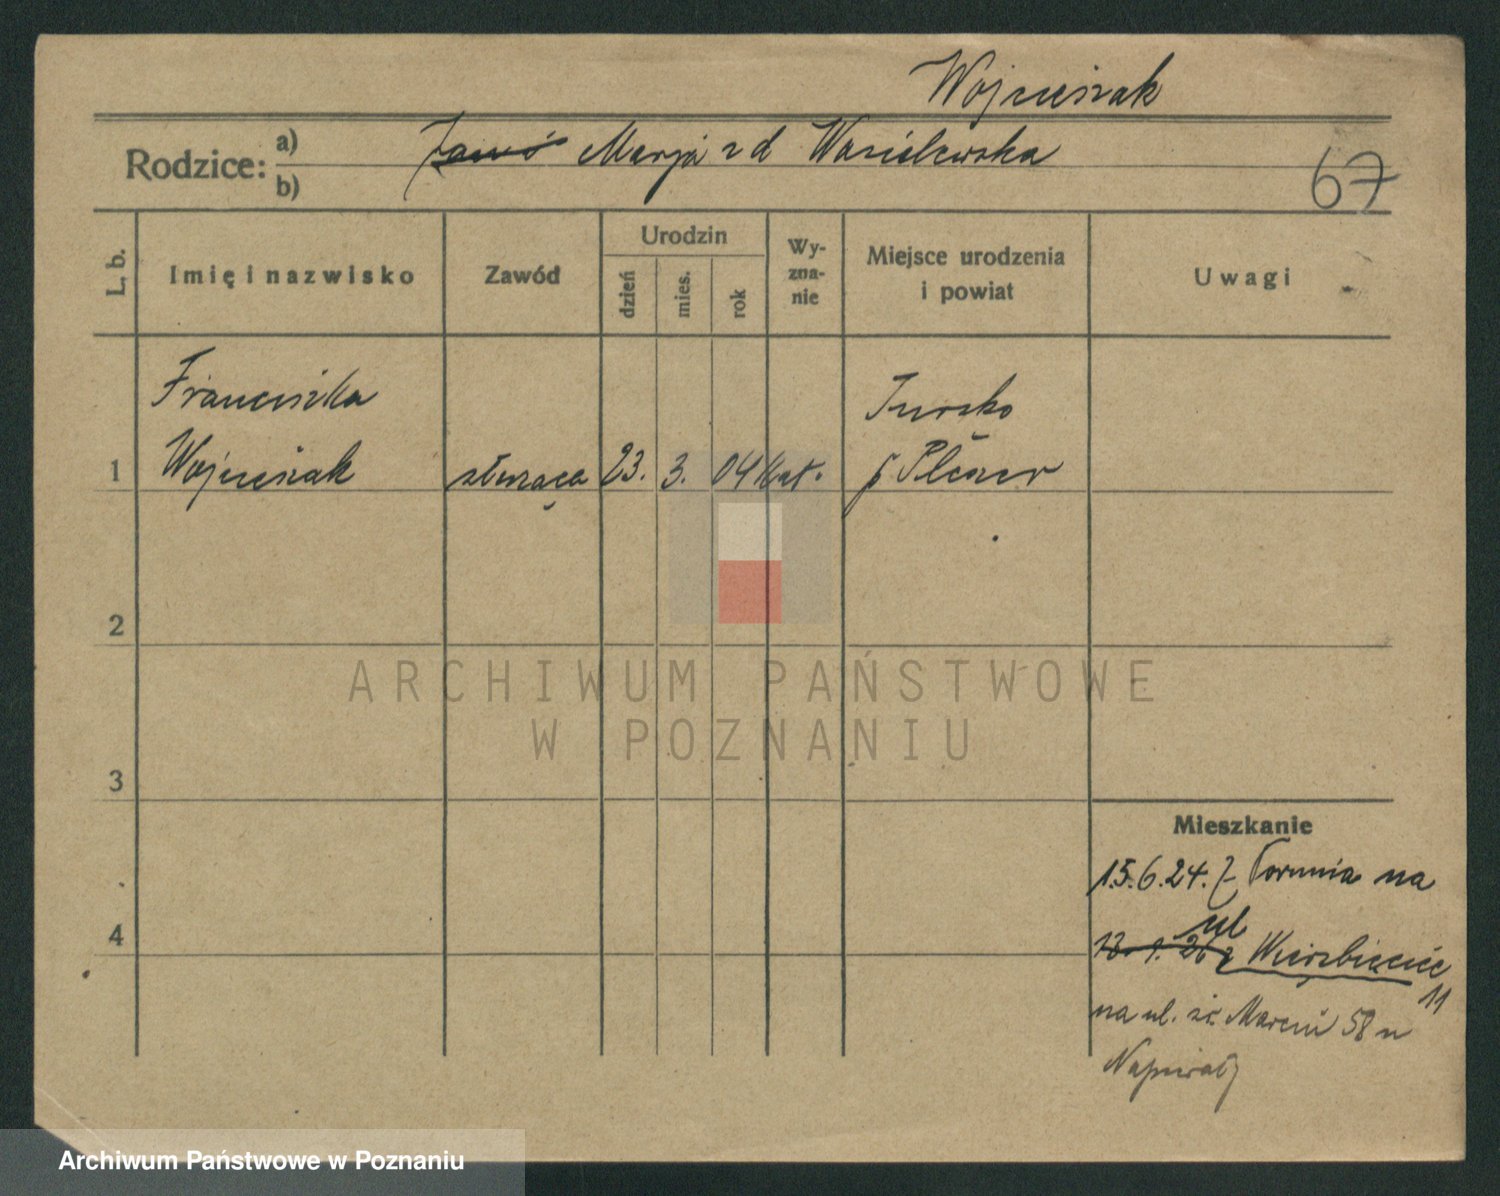 Wojcieszak
Rodzice: a) Marja z d Wasielewska
b)
67
L. b.
Imię i nazwisko
Zawód
Urodzin
dzień
mies.
rok
Wy-
zna-
nie
Miejsce urodzenia
i powiat
Uwagi
Franciszka
Wojcieszak
1
służąca
23.
3.
04
kat.
Tursko
p Pleszew
2
3
4
ARCHIWUM PAŃSTWOWE
W POZNANIU
Mieszkanie
15.6.24. Z Torunia na
ul
Wierzbięcice
11
na ul. św. Marcin 58 u
Archiwum Państwowe w Poznaniu